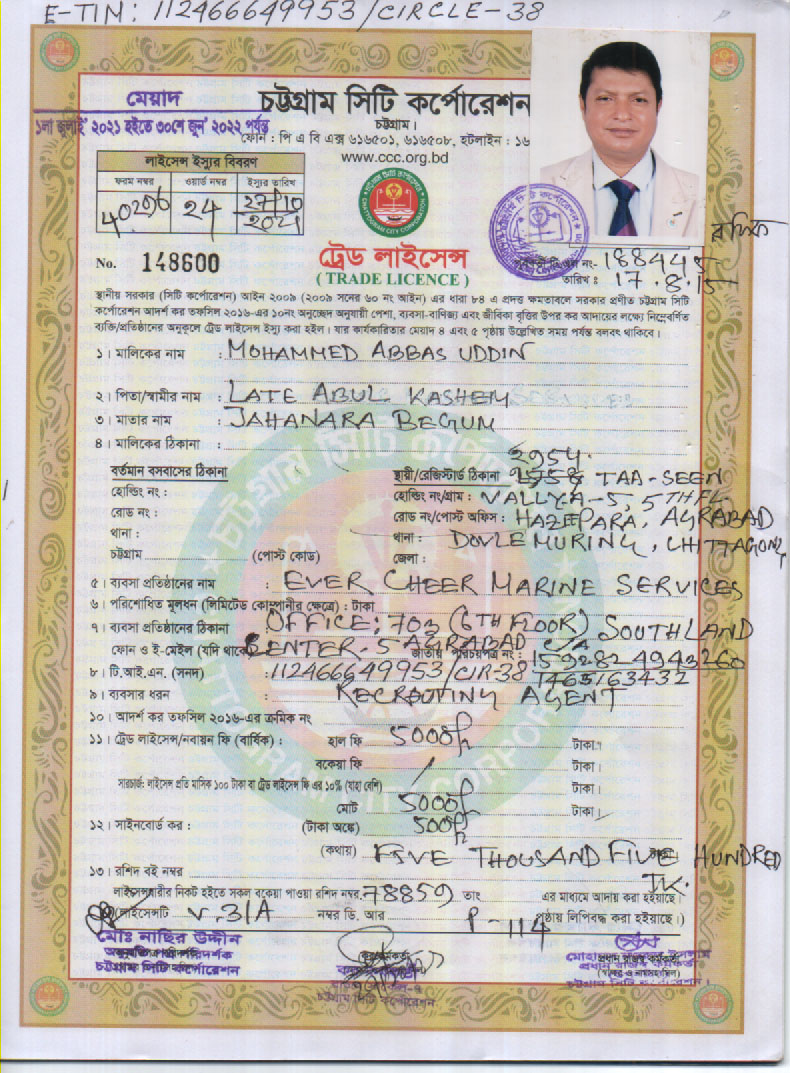 E-TIN: 112466649953/CIRCLE-38
মেয়াদ
১লা জুলাই' ২০২১ হইতে ৩০শে জুন' ২০২২ পর্যন্ত
চট্টগ্রাম সিটি কর্পোরেশন
চট্টগ্রাম।
ফোন : পি এ বি এক্স ৬১৬৫০১, ৬১৬৫০৮, হটলাইন : ১৬
www.ccc.org.bd
লাইসেন্স ইস্যুর বিবরণ
ফরম নম্বর ওয়ার্ড নম্বর ইস্যুর তারিখ
40296 24 27/10 2021
No. 148600
ট্রেড লাইসেন্স
( TRADE LICENCE )
নং- 188445
তারিখ : 17.8.15
স্থানীয় সরকার (সিটি কর্পোরেশন) আইন ২০০৯ (২০০৯ সনের ৬০ নং আইন) এর ধারা ৮৪ এ প্রদত্ত ক্ষমতাবলে সরকার প্রণীত চট্টগ্রাম সিটি
কর্পোরেশন আদর্শ কর তফসিল ২০১৬-এর ১০নং অনুচ্ছেদ অনুযায়ী পেশা, ব্যবসা-বাণিজ্য এবং জীবিকা বৃত্তির উপর কর আদায়ের লক্ষ্যে নিম্নেবর্ণিত
ব্যক্তি/প্রতিষ্ঠানের অনুকূলে ট্রেড লাইসেন্স ইস্যু করা হইল। যার কার্যকারিতার মেয়াদ ৪ এবং ৫ পৃষ্ঠায় উল্লেখিত সময় পর্যন্ত বলবৎ থাকিবে।
১। মালিকের নাম : MOHAMMED ABBAS UDDIN
২। পিতা/স্বামীর নাম : LATE ABUL KASHEM
৩। মাতার নাম : JAHANARA BEGUM
৪। মালিকের ঠিকানা :
বর্তমান বসবাসের ঠিকানা
হোল্ডিং নং :
রোড নং :
থানা :
চট্টগ্রাম (পোস্ট কোড)
স্থায়ী/রেজিস্টার্ড ঠিকানা 2954 TAA-SEEN
হোল্ডিং নং/গ্রাম : VALLY-A-5, 5TH FL
রোড নং/পোস্ট অফিস : HAZEEPARA, AGRABAD
থানা : DOVLEMURING, CHITTAGONG
জেলা :
৫। ব্যবসা প্রতিষ্ঠানের নাম : EVER CHEER MARINE SERVICES
৬। পরিশোধিত মূলধন (লিমিটেড কোম্পানীর ক্ষেত্রে) : টাকা
৭। ব্যবসা প্রতিষ্ঠানের ঠিকানা : OFFICE: 703 (6TH FLOOR) SOUTHLAND
CENTER-5 AGRABAD C/A
ফোন ও ই-মেইল (যদি থাকে) জাতীয় পরিচয়পত্র নং : 1592824943260
৮। টি.আই.এন. (সনদ) : 112466649953/CIR-38 7465163432
৯। ব্যবসার ধরন : RECRUTING AGENT
১০। আদর্শ কর তফসিল ২০১৬-এর ক্রমিক নং
১১। ট্রেড লাইসেন্স/নবায়ন ফি (বার্ষিক) : হাল ফি 5000/ টাকা।
বকেয়া ফি / টাকা।
সারচার্জ: লাইসেন্স প্রতি মাসিক ১০০ টাকা বা ট্রেড লাইসেন্স ফি এর ১০% (যাহা বেশি) টাকা।
মোট 5000/ টাকা।
১২। সাইনবোর্ড কর : (টাকা অঙ্কে) 500/
(কথায়) FIVE THOUSAND FIVE HUNDRED TK.
১৩। রশিদ বই নম্বর
লাইসেন্সধারীর নিকট হইতে সকল বকেয়া পাওয়া রশিদ নম্বর 78859 তাং এর মাধ্যমে আদায় করা হইয়াছে।
(লাইসেন্সটি V.31A নম্বর ডি. আর P-114 পৃষ্ঠায় লিপিবদ্ধ করা হইয়াছে।)
মোঃ নাছির উদ্দীন
চট্টগ্রাম সিটি কর্পোরেশন
প্রধান রাজস্ব কর্মকর্তা